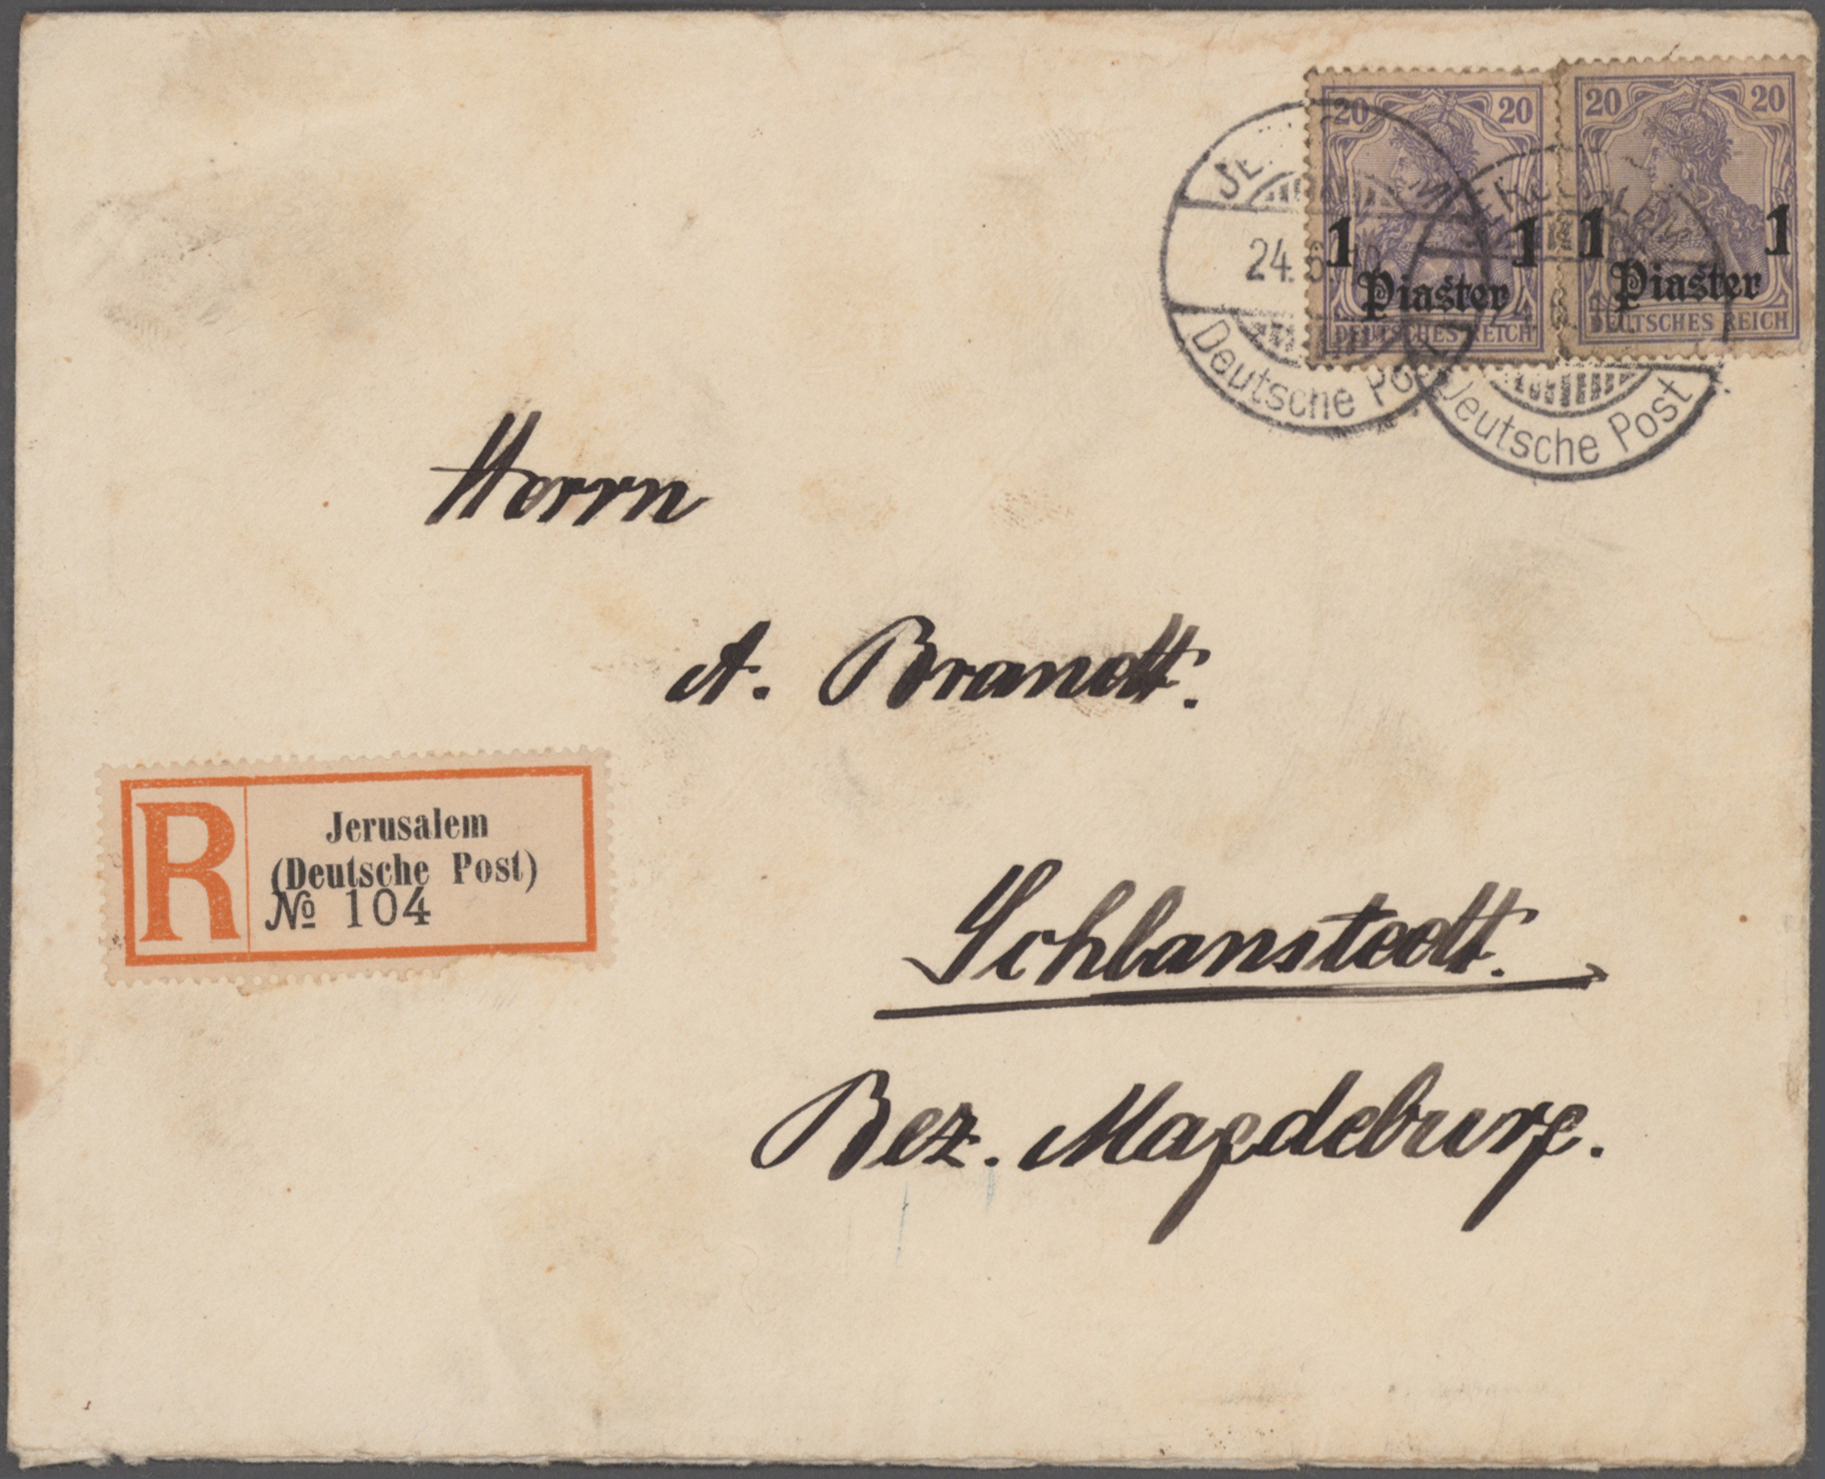 20 20
1 1
Piaster
DEUTSCHES REICH
20 20
1 1
Piaster
DEUTSCHES REICH
24.
Deutsche Post
JERUSALEM
Deutsche Post
Herrn
A. Brandt.
R
Jerusalem
(Deutsche Post)
№ 104
Schlanstedt.
Bez. Magdeburg.